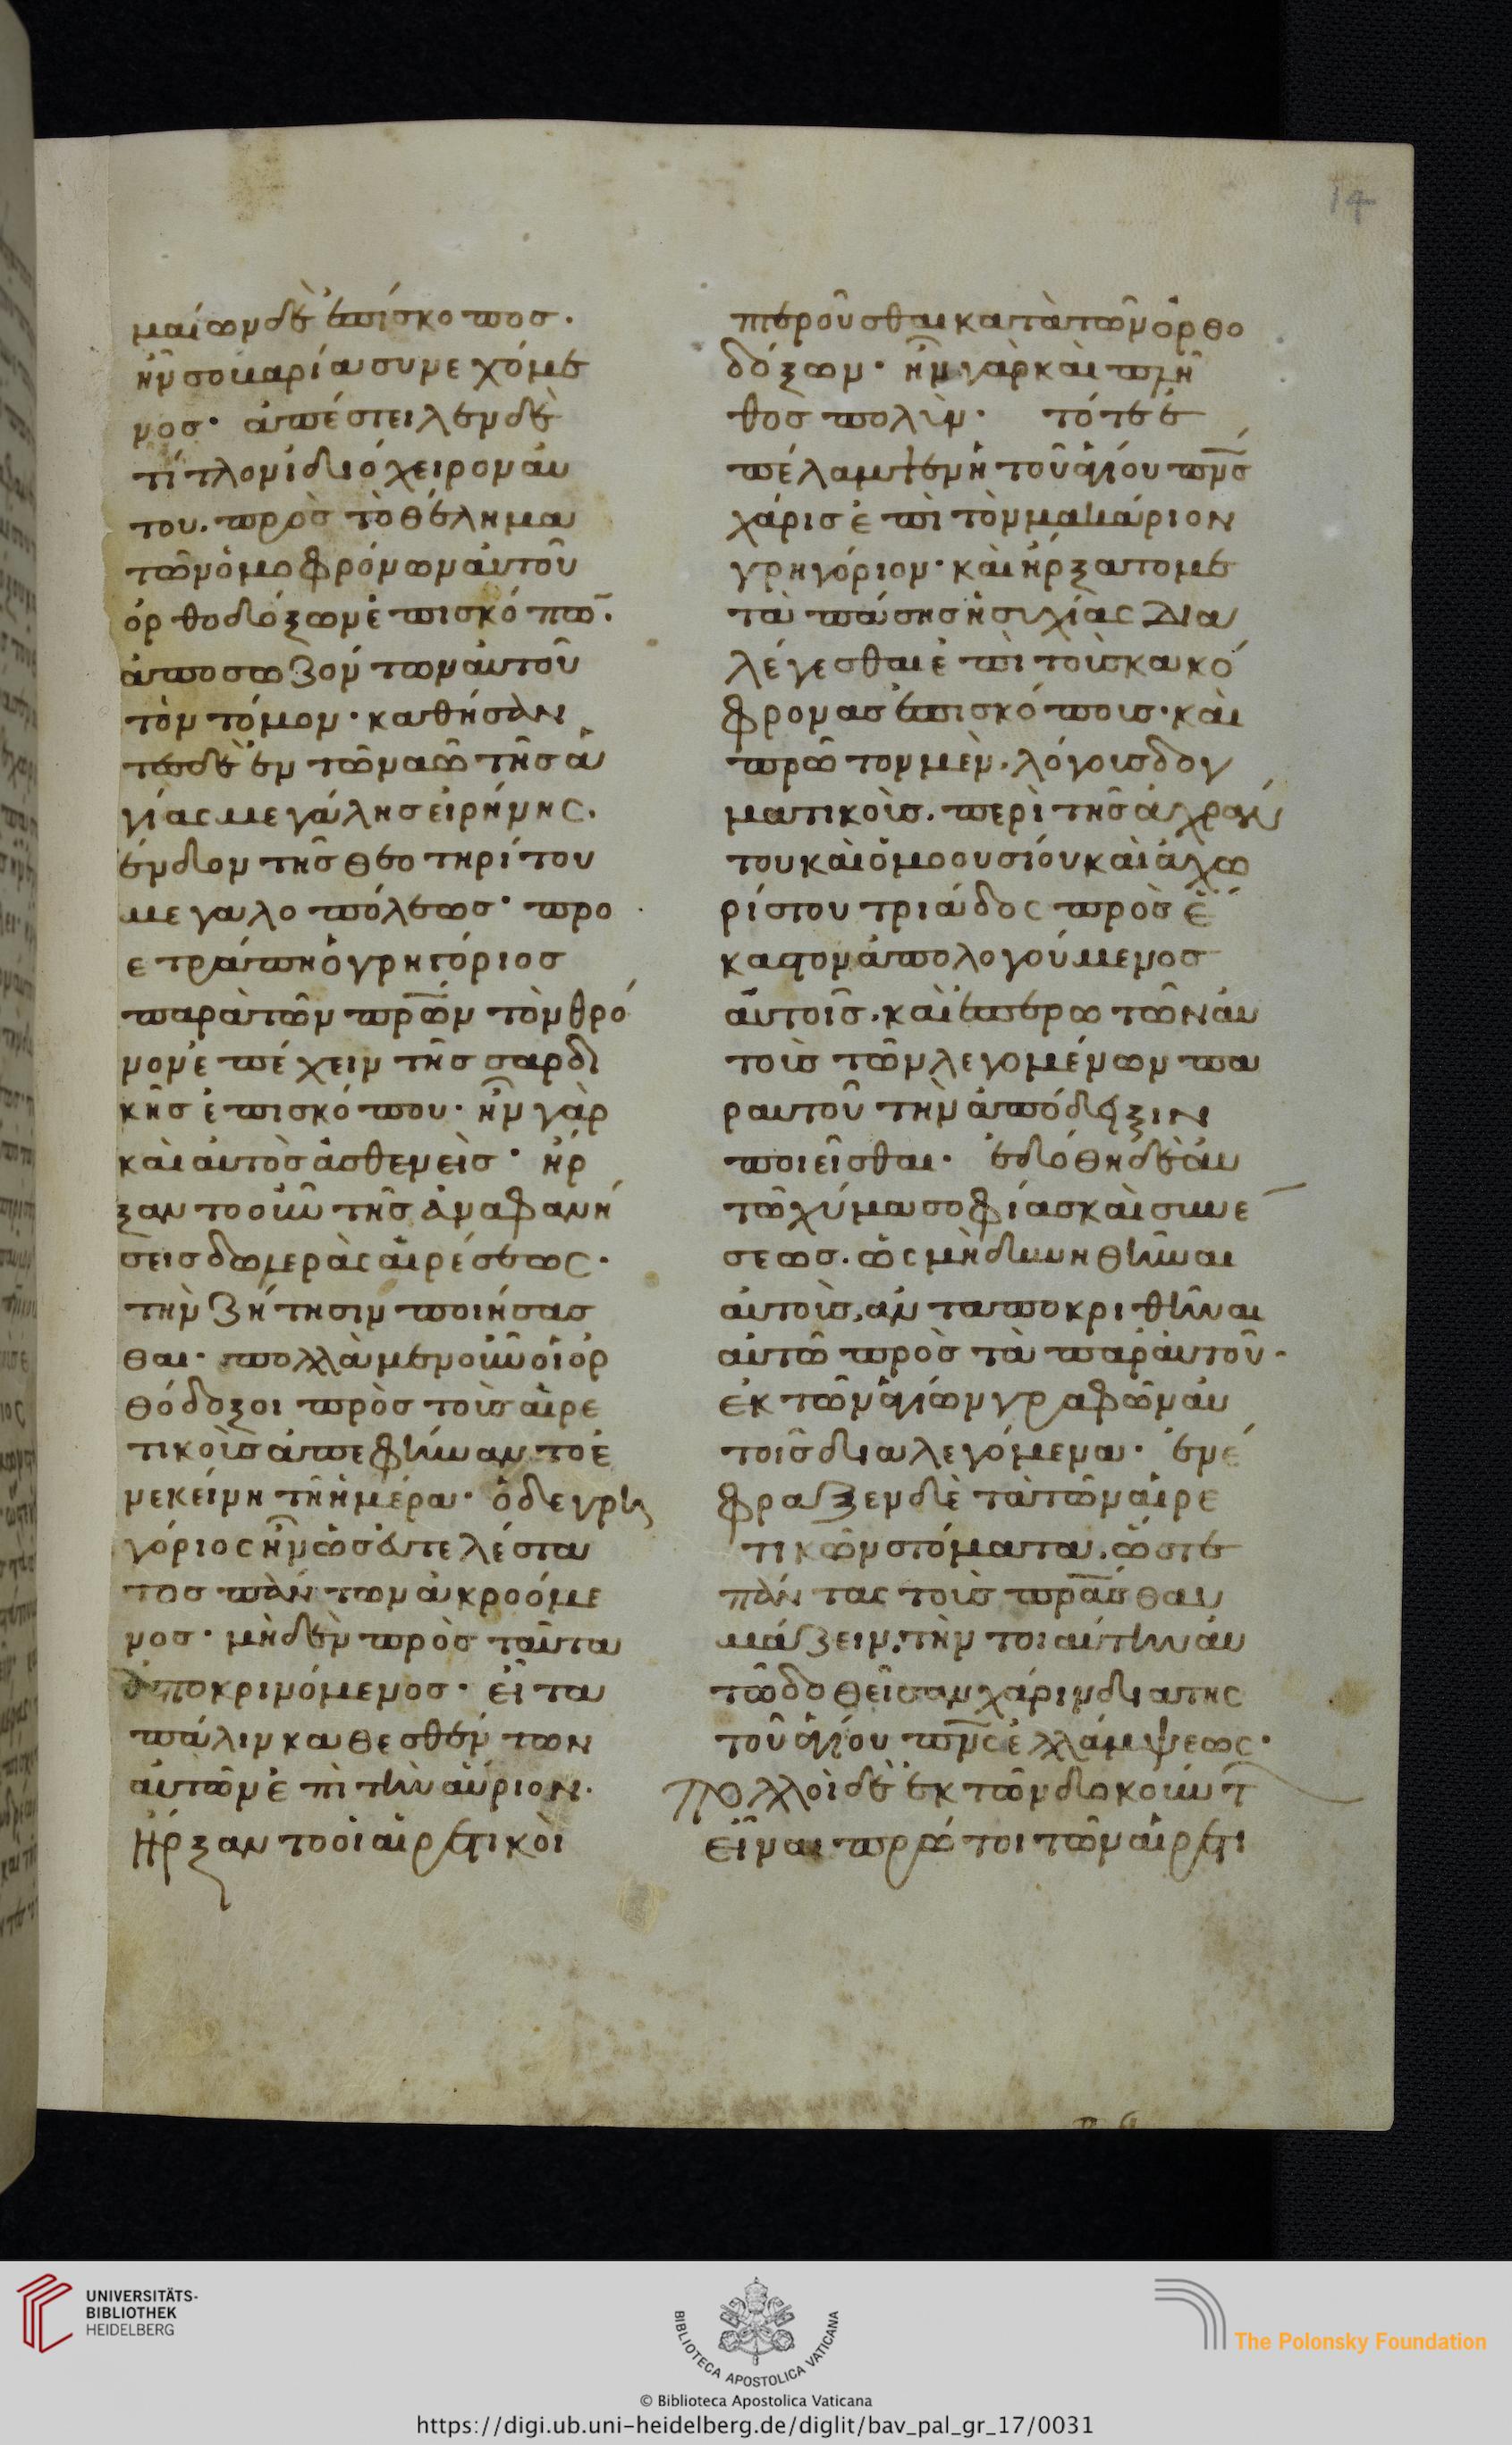 14
μαίων δὲ ἐπίσκοπος.
ἦν σομαρία συνεχόμε
νος· ἀπέστειλεν δὲ
τίτλον ἰδιόχειρον αυ
του. πρὸς τὸ θέλημα
τῶν ὁμοφρόνων αὐτοῦ
ὀρθοδόξων ἐπισκόπω̅.
ἀποσωζόντων αὐτοῦ
τὸν τόμον· καθήσαν
τες δὲ ἐν τῶ ναῶ τῆς ἁ
γίας μεγάλης εἰρήνης.
ἔνδον τῆς θεοτηρίτου
μεγαλοπόλεως· προ
ετράπη ὁ γρηγόριος
παρὰ τῶν πρ̅ων τὸν θρό
νον ἐπέχειν τῆς σαρδι
κῆς ἐπισκόπου· ἦν γὰρ
καὶ αὐτὸς ἀσθενεὶς· ἤρ
ξαντο οὖν τῆς ἀναφανή
σεις δωμερὰς αἱρέσεως.
τὴν ζήτησιν ποιήσασ
θαι· πολλὰ μὲν οὖν οἱ ὀρ
θόδοξοι πρὸς τοὺς αἱρε
τικοὺς ἀπεφήναντο ἐ
ν ἐκείνη τῆ ἡμέρα· ὁ δὲ γρη
γόριος ἦν ὡς ἀτελέστα
τος πάντων ἀκροόμε
νος· μὴδὲν πρὸς ταῦτα
ἀποκρινόμενος· εἶτα
πάλιν καθεσθέντων
αὐτῶν ἐπὶ τὴν αὔριον.
Ἤρξαντο οἱ αἱρετικοὶ
περοῦσθαι κατὰ τῶν ὀρθο
δόξων· ἦν γὰρ καὶ πλῆ
θος πολὺν· τότε ἐ
πέλαμψεν ἡ τοῦ ἁγίου πν̅ς
χάρις ἐπὶ τὸν μακάριον
γρηγόριον· καὶ ἤρξατο με
τὰ πάσης ἡσυχίας δια
λέγεσθαι ἐπὶ τοὺς κακό
φρονας ἐπισκόπους· καὶ
πρῶτον μὲν. λόγοις δογ
ματικοὶς. περὶ τῆς ἀχράν
του καὶ ὁμοουσίου καὶ ἀχω
ρίστου τριάδος πρὸς ἕ
καστον ἀπολογούμενος
αὐτοῖς. καὶ ἐπερωτῶν αὐ
τοὺς τῶν λεγομένων πα
ρ αυτοῦ τὴν ἀπόδειξιν
ποιεῖσθαι· ἐδόθη δὲ αὐ
τῶ χύμα σοφίας καὶ συνέ
σεως. ὡς μὴ δυνηθῆναι
αὐτοὺς, ἀνταποκριθῆναι
αὐτῶ πρὸς τὰ παρ αὐτοῦ.
ἐκ τῶν ἁγίων γραφῶν αὐ
τοῖς διαλεγόμενα· ἐνέ
φραξεν δὲ τὰ τῶν αἱρε
τικῶν στόματα. ὥστε
πάντας τοὺς πρ̅ας θαυ
μάζειν, τὴν τοιαύτην αὐ
τῶ δοθεῖσαν χάριν δια της
τοῦ ἁγίου πν̅ς ἐλλάμψεως·
Πολλοὶ δὲ ἐκ τῶν δοκούντ
εἶναι πρώτοι τῶν αἱρετι
UNIVERSITÄTS-
BIBLIOTHEK
HEIDELBERG
BIBLIOTECA APOSTOLICA VATICANA
The Polonsky Foundation
© Biblioteca Apostolica Vaticana
https://digi.ub.uni-heidelberg.de/diglit/bav_pal_gr_17/0031